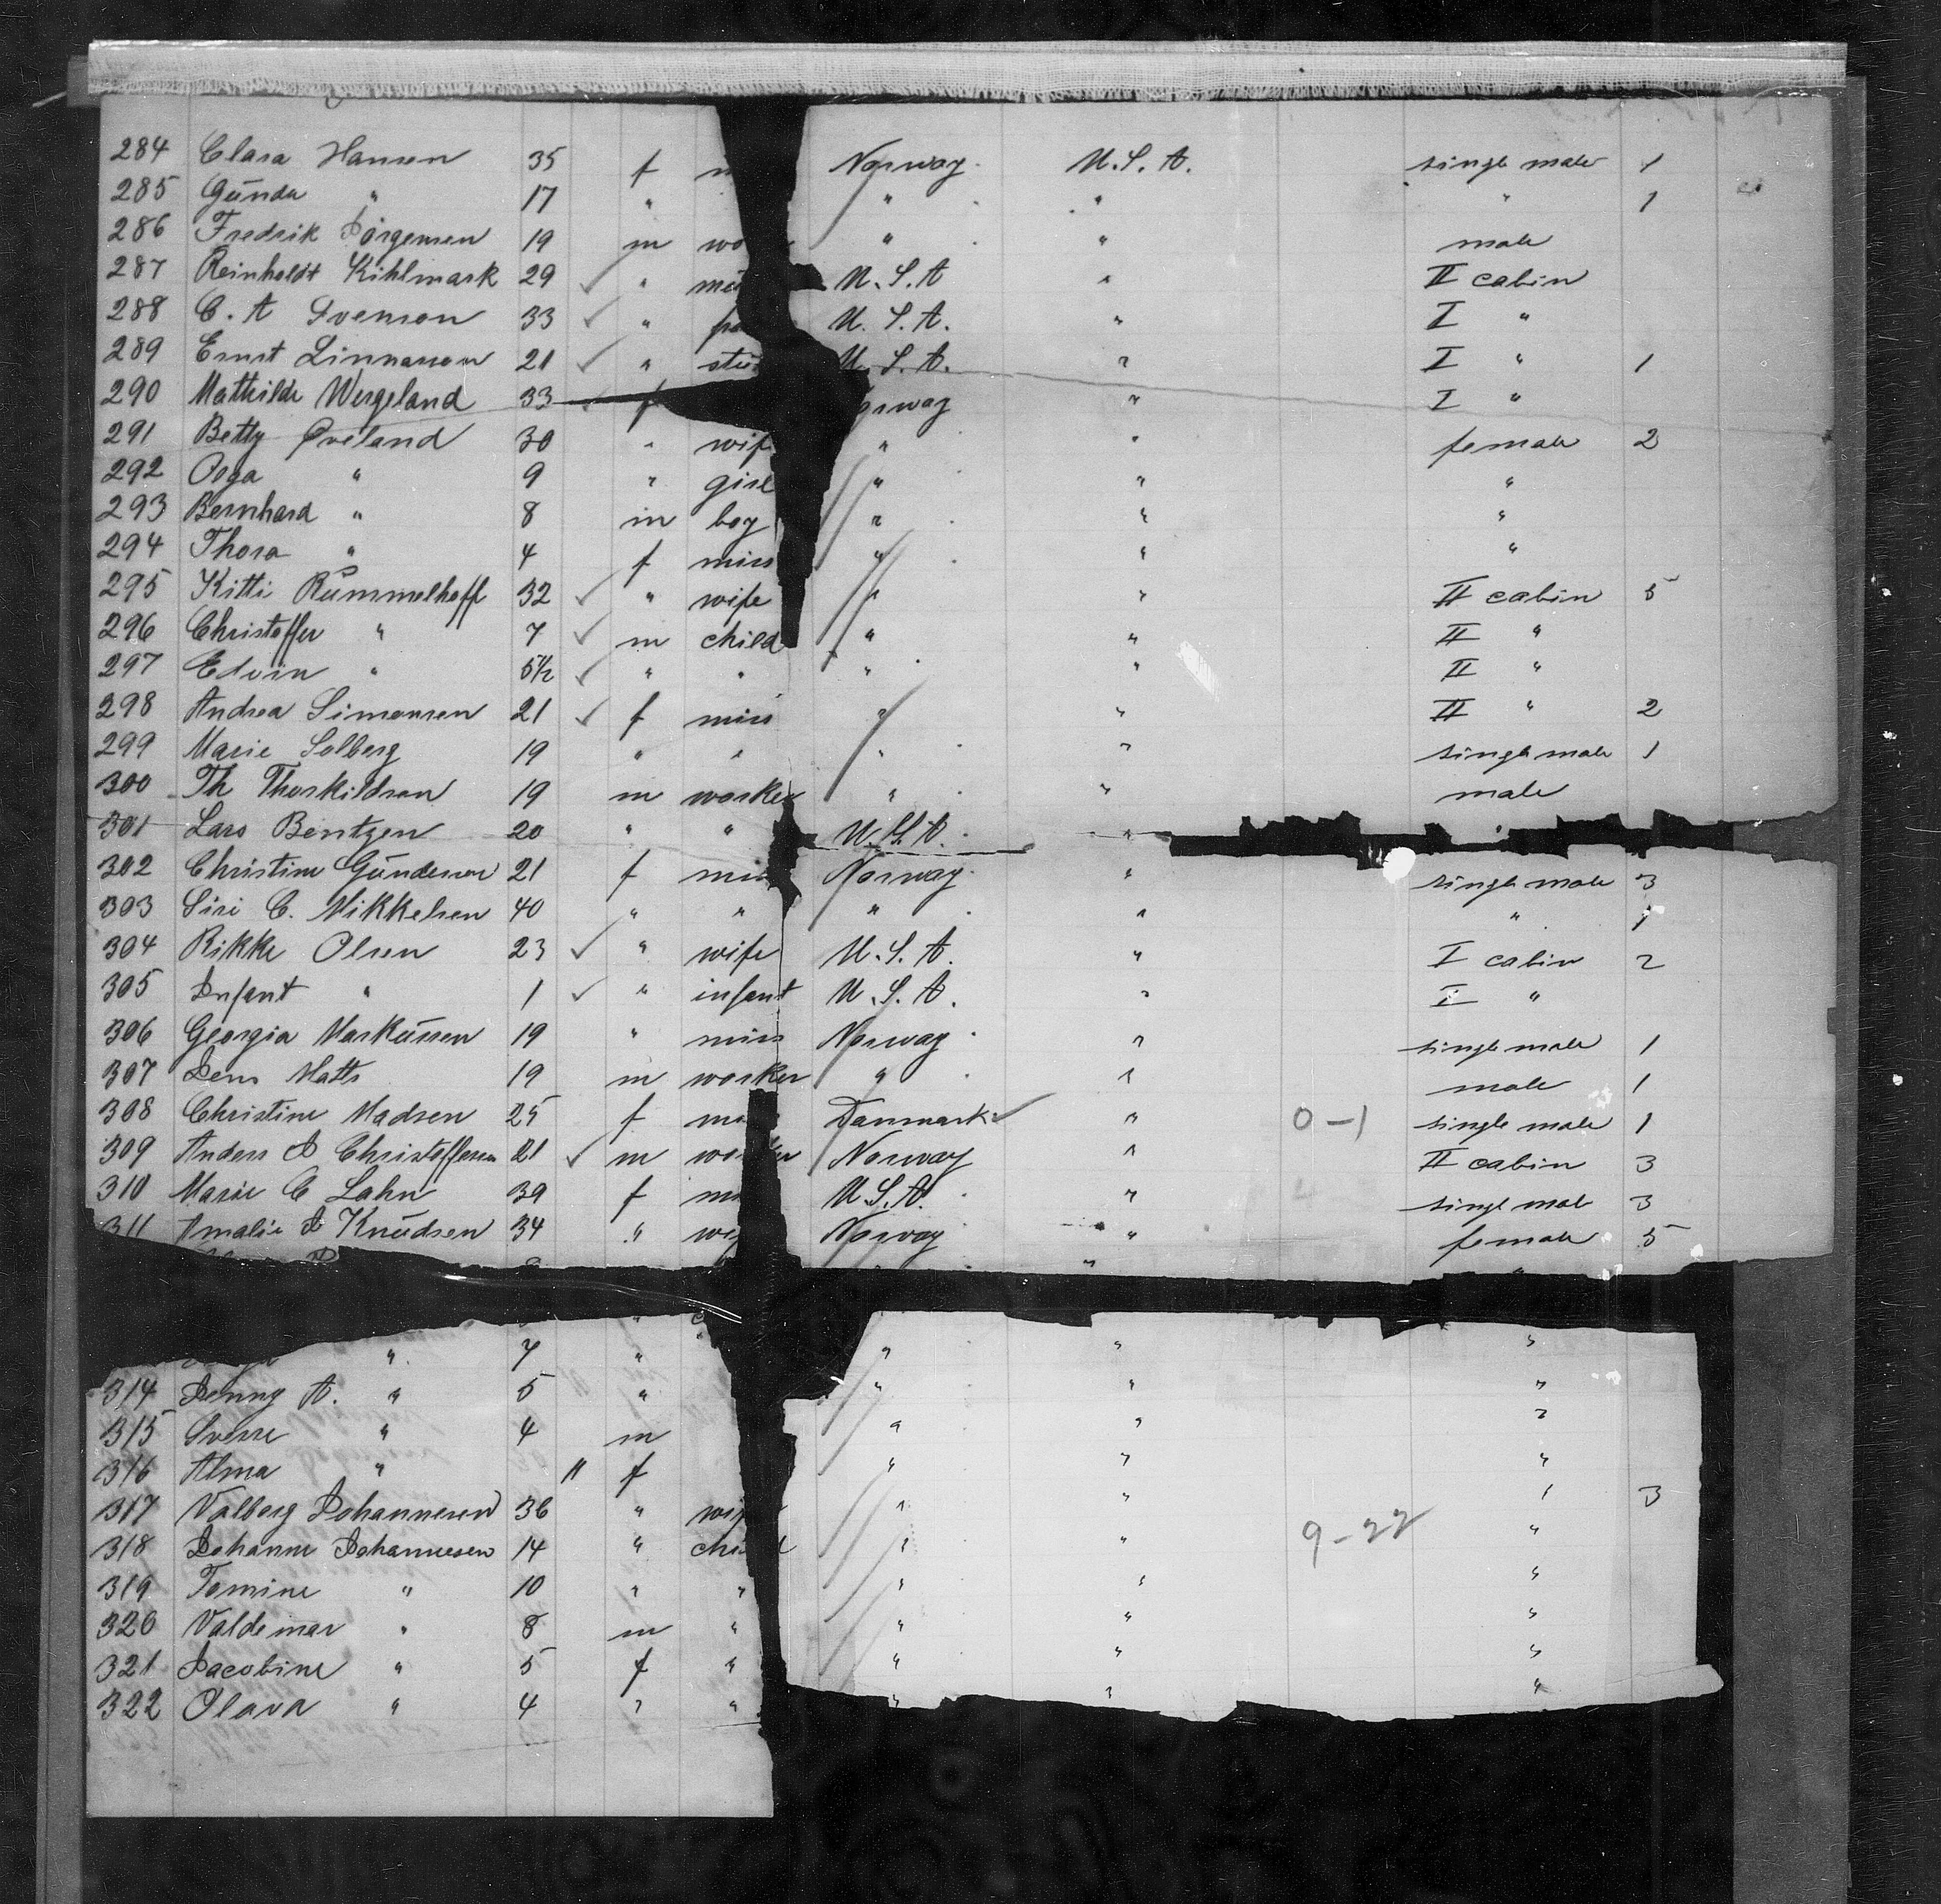 284 Clara Hansen 35 f Norway. U.S.A. single male 1
285 Gunda " 17 " " " " 1
286 Fredrik Jörgensen 19 m " " male
287 Reinholdt Kihlmark 29 ✓ " U.S.A " II cabin
288 C. A Svenson 33 ✓ " U.S.A. " I "
289 Ernst Linnarson 21 ✓ " U.S.A. " I " 1
290 Mathilde Wergeland 33 ✓ f " I "
291 Betty Øveland 30 " wife " " female 2
292 " 9 " girl " " "
293 Bernhard " 8 m boy " " "
294 Thora " 4 f miss " " "
295 Kitti Rummelhoff 32 ✓ " wife " " II cabin 5
296 Christoffer " 7 ✓ m child " " II "
297 Edvin " 5 1/2 ✓ " " " " II "
298 Andrea Simonsen 21 ✓ f miss " " II " 2
299 Marie Solberg 19 " " " " single male 1
300 Th Thorkildsen 19 m worker " " male
301 Lars Bentzen 20 " " U.S.A. "
302 Christine Gundersen 21 f miss Norway. " single male 3
303 Siri C. Mikkelsen 40 " " " " " 1
304 Rikke Olsen 23 ✓ " wife U.S.A. " I cabin 2
305 Infant " 1 ✓ " infant U.S.A. " I "
306 Georgia Markussen 19 " miss Norway " single male 1
307 Jens Matts 19 m worker " " male 1
308 Christine Madsen 25 f Danmark ✓ " 0-1 single male 1
309 Anders J Christoffersen 21 ✓ m worker Norway " II cabin 3
310 Marie C Lahn 39 f U.S.A. " single male 3
311 Amalie J Knudsen 34 " Norway " female 5
" 7 " " " "
314 Jenny A. " 5 " " " "
315 Sverre " 4 m " " "
316 Alma " 11 f " " "
317 Valborg Johannesen 36 " wife " " " 3
318 Johanne Johannesen 14 " child " " 9-22 "
319 Tomine " 10 " " " " "
320 Valdemar " 8 m " " " "
321 Jacobine " 5 f " " " "
322 Olava " 4 " " " " "